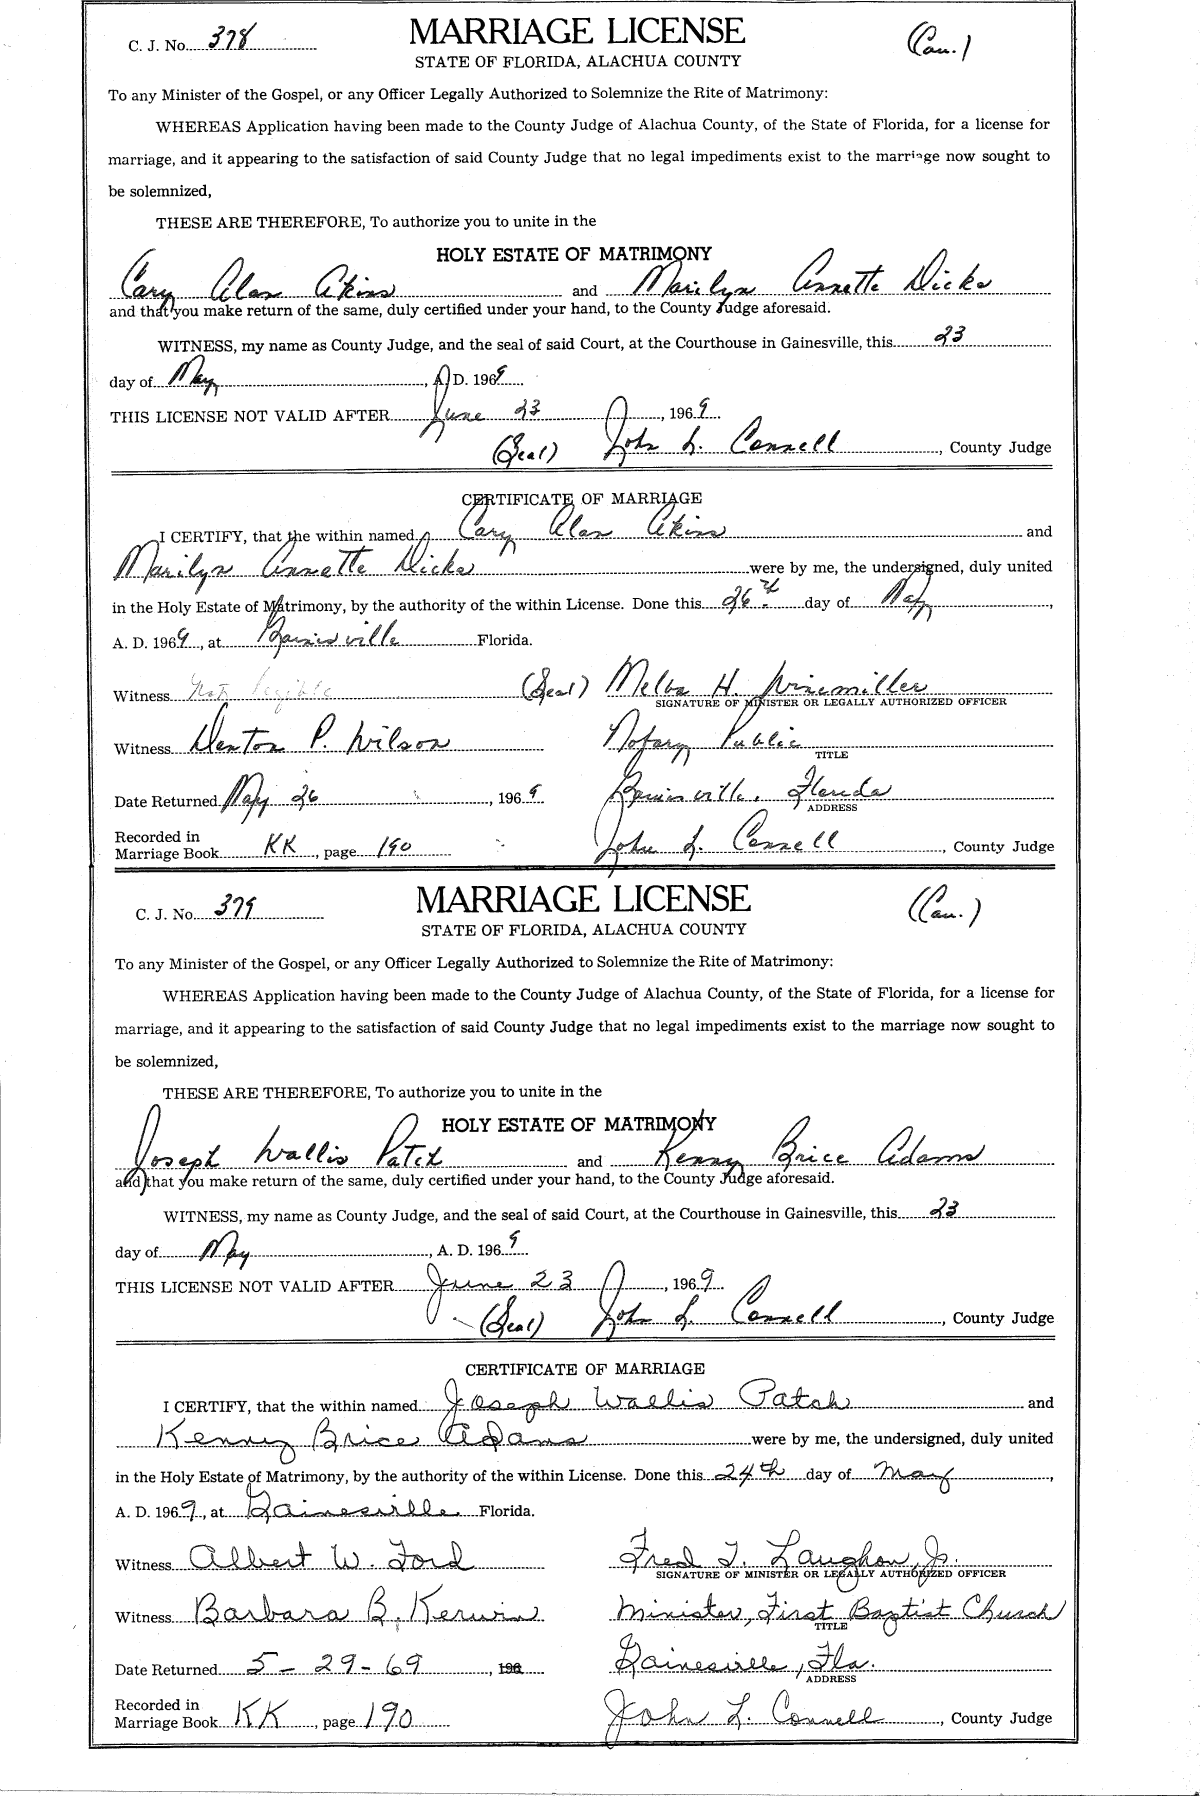 C. J. No. 378
MARRIAGE LICENSE
(Cau.)
STATE OF FLORIDA, ALACHUA COUNTY
To any Minister of the Gospel, or any Officer Legally Authorized to Solemnize the Rite of Matrimony:
WHEREAS Application having been made to the County Judge of Alachua County, of the State of Florida, for a license for
marriage, and it appearing to the satisfaction of said County Judge that no legal impediments exist to the marriage now sought to
be solemnized,
THESE ARE THEREFORE, To authorize you to unite in the
HOLY ESTATE OF MATRIMONY
Cary Alan Akins and Marilyn Annette Dicks
and that you make return of the same, duly certified under your hand, to the County Judge aforesaid.
WITNESS, my name as County Judge, and the seal of said Court, at the Courthouse in Gainesville, this 23
day of May, A. D. 1969
THIS LICENSE NOT VALID AFTER June 23, 1969
(Seal) John L. Connell, County Judge
CERTIFICATE OF MARRIAGE
I CERTIFY, that the within named Cary Alan Akins and
Marilyn Annette Dicks were by me, the undersigned, duly united
in the Holy Estate of Matrimony, by the authority of the within License. Done this 26th day of May,
A. D. 1969, at Gainesville Florida.
Witness Not Legible (Seal) Melba H. Winemiller
SIGNATURE OF MINISTER OR LEGALLY AUTHORIZED OFFICER
Witness Denton P. Wilson Notary Public
TITLE
Date Returned May 26, 1969 Gainesville, Florida
ADDRESS
Recorded in
Marriage Book KK, page 190 John L. Connell, County Judge
C. J. No. 379
MARRIAGE LICENSE
(Cau.)
STATE OF FLORIDA, ALACHUA COUNTY
To any Minister of the Gospel, or any Officer Legally Authorized to Solemnize the Rite of Matrimony:
WHEREAS Application having been made to the County Judge of Alachua County, of the State of Florida, for a license for
marriage, and it appearing to the satisfaction of said County Judge that no legal impediments exist to the marriage now sought to
be solemnized,
THESE ARE THEREFORE, To authorize you to unite in the
HOLY ESTATE OF MATRIMONY
Joseph Wallis Patch and Kenny Brice Adams
and that you make return of the same, duly certified under your hand, to the County Judge aforesaid.
WITNESS, my name as County Judge, and the seal of said Court, at the Courthouse in Gainesville, this 23
day of May, A. D. 1969
THIS LICENSE NOT VALID AFTER June 23, 1969
(Seal) John L. Connell, County Judge
CERTIFICATE OF MARRIAGE
I CERTIFY, that the within named Joseph Wallis Patch and
Kenny Brice Adams were by me, the undersigned, duly united
in the Holy Estate of Matrimony, by the authority of the within License. Done this 24th day of May,
A. D. 1969, at Gainesville Florida.
Witness Albert W. Ford Fred T. Laughon, Jr.
SIGNATURE OF MINISTER OR LEGALLY AUTHORIZED OFFICER
Witness Barbara B. Kerwin Minister, First Baptist Church
TITLE
Date Returned 5-29-69, 196 Gainesville, Fla.
ADDRESS
Recorded in
Marriage Book KK, page 190 John L. Connell, County Judge